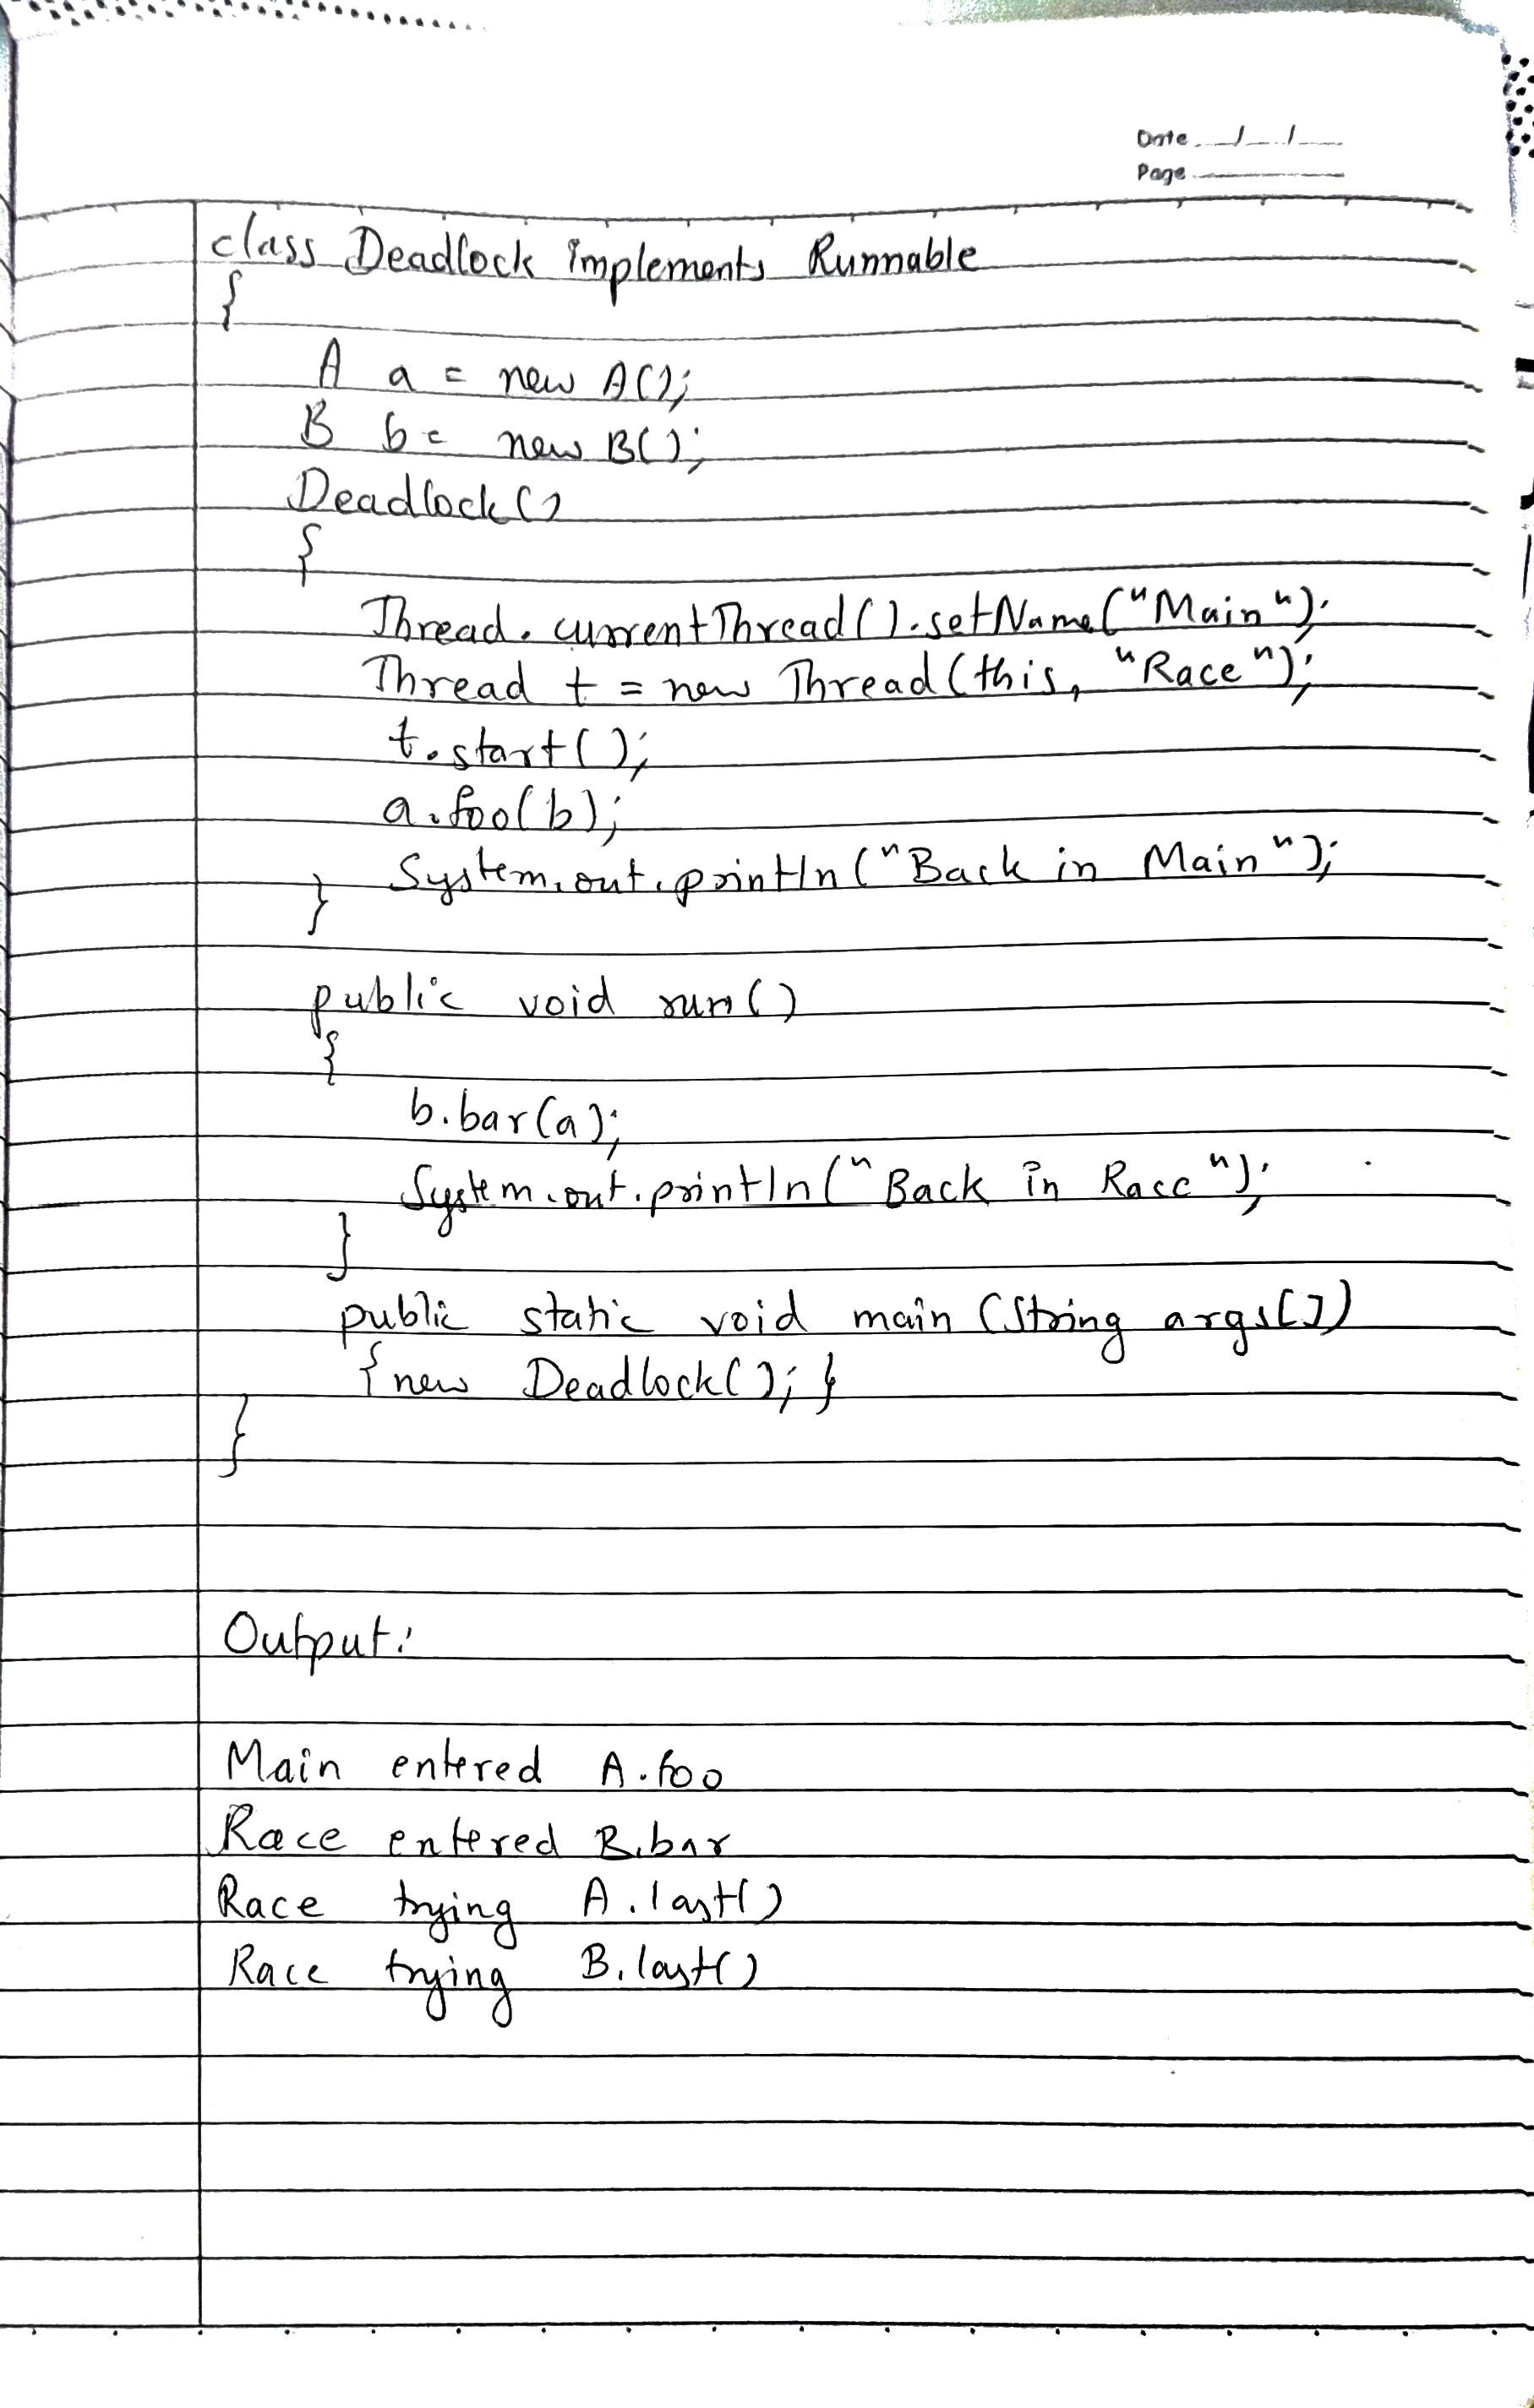 Date / /
Page
class Deadlock implements Runnable
{
A a = new A();
B b = new B();
Deadlock()
{
Thread.currentThread().setName("Main");
Thread t = new Thread(this, "Race");
t.start();
a.foo(b);
System.out.println("Back in Main");
}
public void run()
{
b.bar(a);
System.out.println("Back in Race");
}
public static void main (String args[])
{new Deadlock(); }
}
Output:
Main entered A.foo
Race entered B.bar
Race trying A.last()
Race trying B.last()